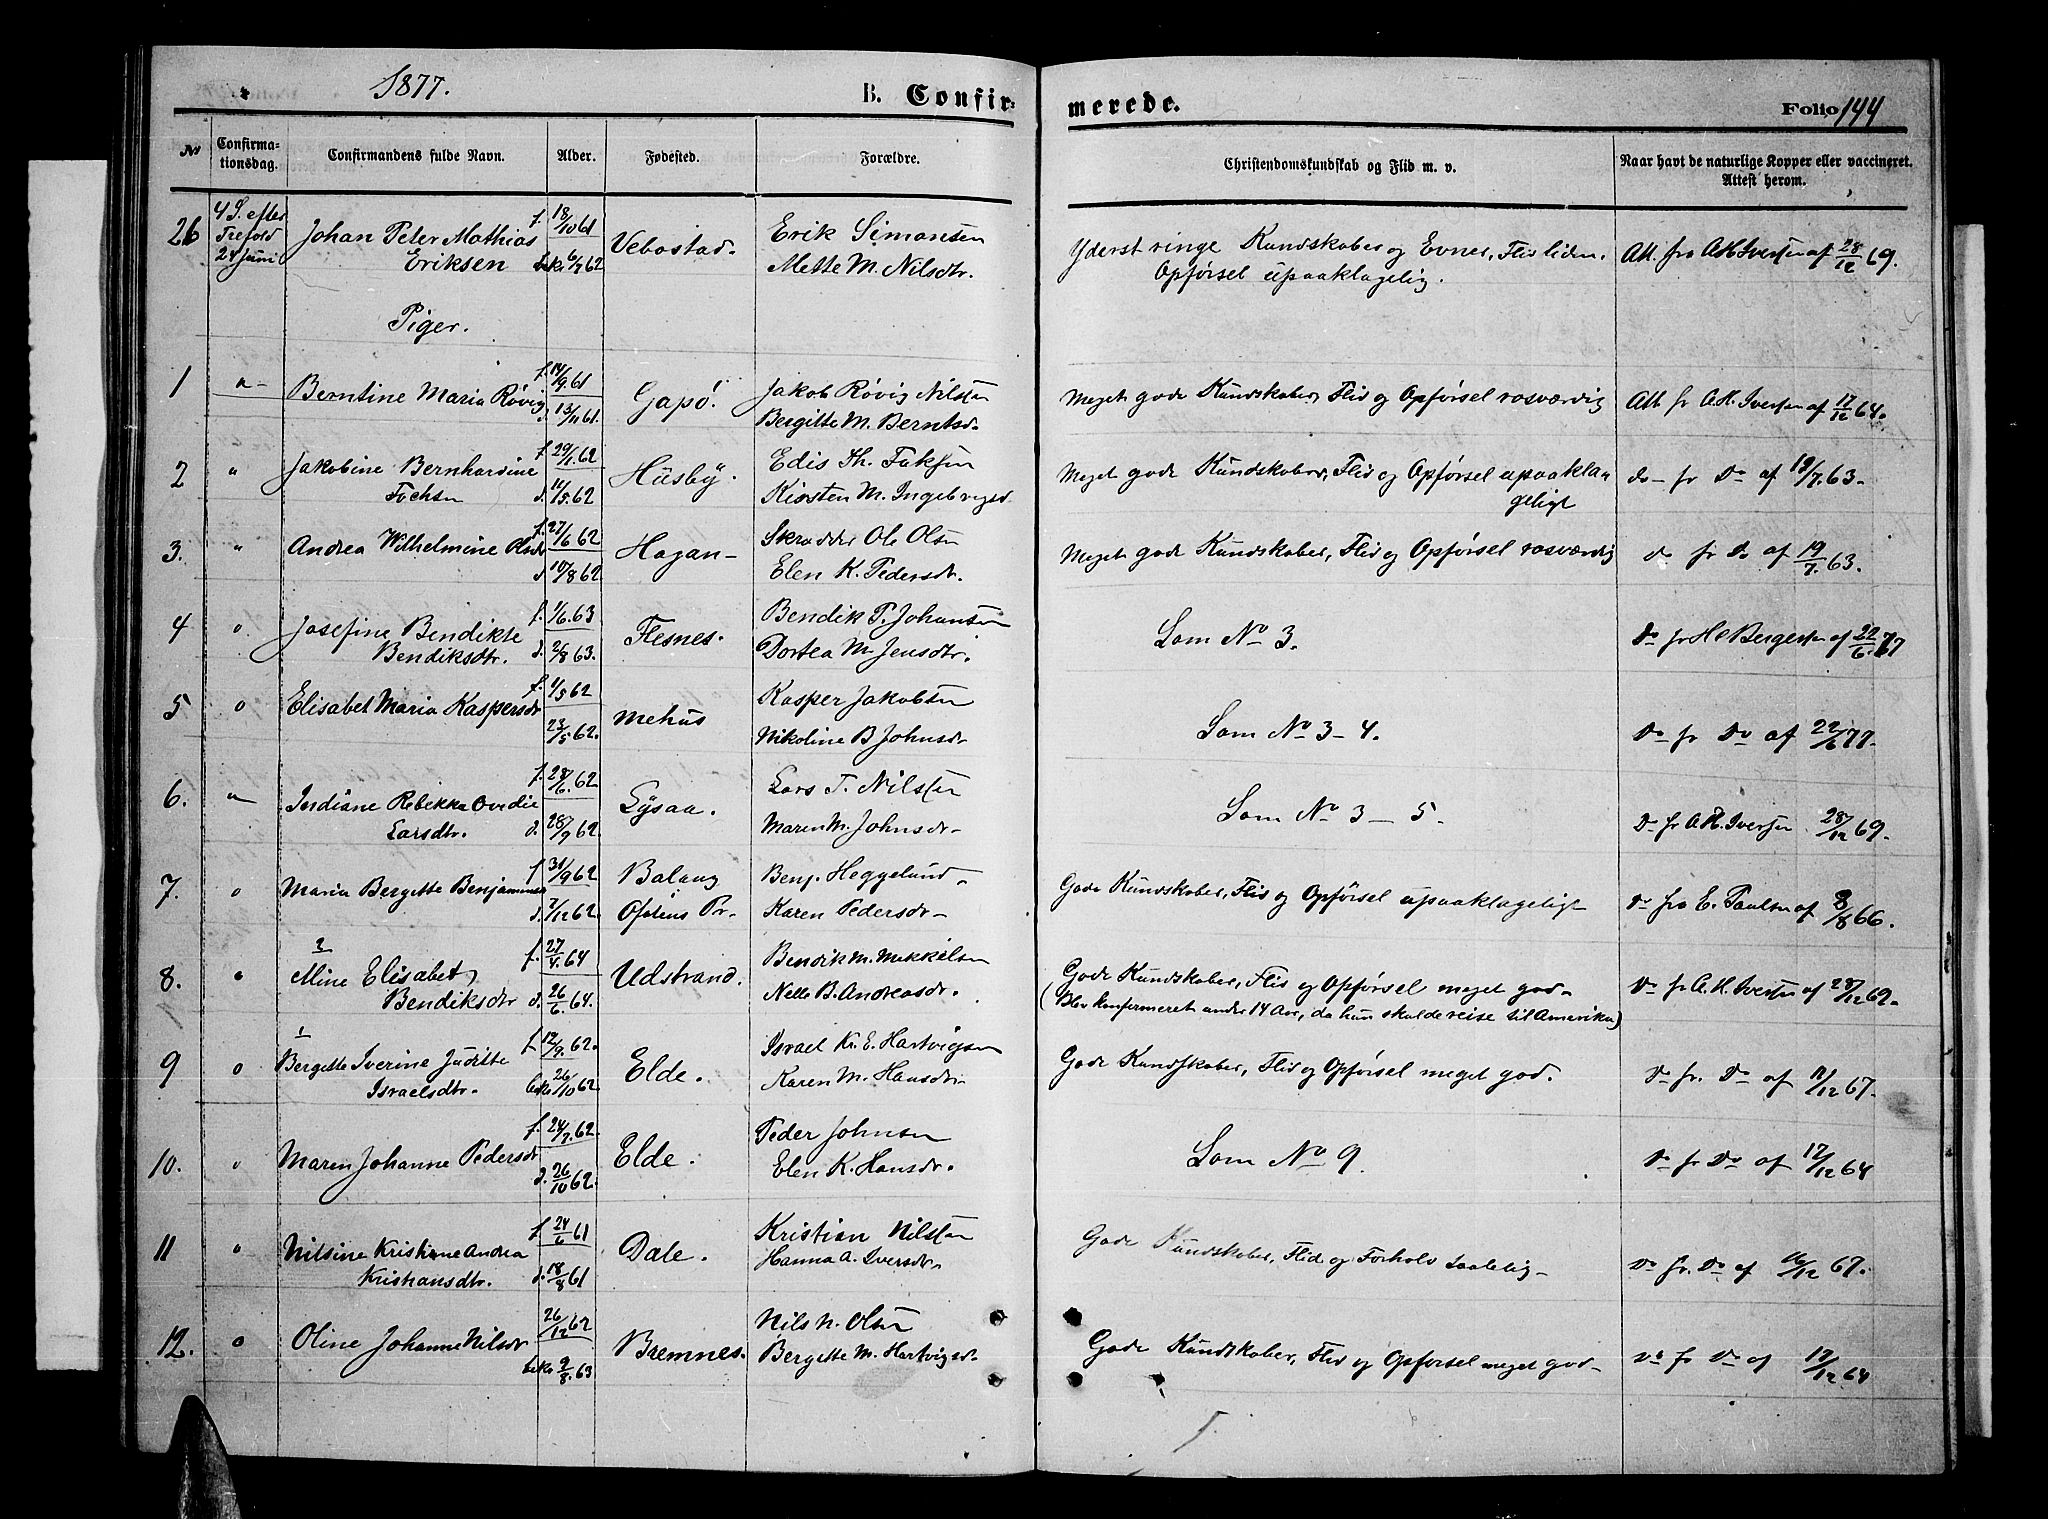 1877.
B. Confirmerede.
Folio 144
No
Confirmationsdag.
Confirmandens fulde Navn.
Alder.
Fødested.
Forældre.
Christendomskundskab og Flid m. v.
Naar havt de naturlige Kopper eller vaccineret. Attest herom.
26
4 S. efter
Trefold
24 Juni
Johan Peter Mathias
Eriksen
f. 18/10 61
6/7 62
Vebostad.
Erik Simonsen
Mette M. Nilsdtr.
Yderst ringe Kundskaber og Evner, Flid liden.
Opførsel upaaklagelig.
Att. fra A H Iversen af 28/12 69.
Piger.
1
Berntine Maria Røvig
f. 14/9 61
d. 13/11 61.
Gapø.
Jakob Røvig Nilsen
Bergitte M. Berntsd.
Meget gode Kundskaber, Flid og Opførsel rosværdig
Att fr A. H. Iversen af 17/12 64.
2
Jakobine Bernhardine
Fochsen
f. 29/1. 62
d. 11/5. 62
Hüsby.
Edis Th. Foksen
Kirsten M. Ingebrigsd.
Meget gode Kundskaber, Flid og Opførsel upaakla
geligt
do fr Do af 19/7. 63.
3.
Andrea Wilhelmine Olsdr
f. 27/6 62
d. 10/8 62
Hagan
Skrædder Ole Olsen
Elen K. Pedersdr.
Meget gode Kundskaber, Flid og Opførsel rosværdig
do fr Do af 19/7. 63.
4
Josefine Bendikte
Bendiksdtr.
f. 1/6. 63
d. 26/8 63.
Flesnes.
Bendik P. Johansen
Dortea M. Jensdtr.
Som No 3.
Do fr H C Bergersen af 22/6. 77
5
Elisabet Maria Kaspersdr
f. 1/5 62
23/5 62.
Mehus
Kasper Jakobsen
Nikoline B Johnsdr
Som No 3-4.
Do fr Do af 22/6 77.
6.
Indiane Rebekka Ovedie
Larsdtr.
f. 28/6. 62
d. 28/9 62.
Lysaa.
Lars T. Nilsen
Maren M. Johnsdr
Som No 3-5.
Do fr A H. Iversen 28/12 69.
7.
Maria Bergitte Benjaminsd
f. 31/9 62
d. 7/12 62.
Balang
Ofotens Pr.
Benj. Heggelund
Karen Pedersdr
Gode Kundskaber, Flid og Opførsel upaaklageligt
Do fra E. Paulsen af 8/8 66.
2
8.
Mine Elisabet
Bendiksdtr
f. 27/4. 64
d. 26/6. 64.
Udstrand.
Bendik M. Mikkelsen
Nelle B. Andreasdr.
Gode Kundskaber, Flid og Opførsel meget god
(Blev konfirmeret under 14 Aar, da hun skulde reise til Amerika)
Do fr A. H. Iversen af 28/12 69.
1
9
Bergitte Iverine Juditte
Israelsdtr.
f 12/9. 62.
26/10 62
Elde.
Israel Kr. E. Hartvigsen
Karen M. Hansdr
Gode Kundskaber, Flid og Opførsel meget god.
Do fr. Do af 11/12 67.
10.
Maren Johanne Pedersdr
f. 24/7. 62.
d. 26/10 62.
Elde.
Peder Johnsen
Elen K. Hansdr.
Som No 9.
Do fr Do af 17/12 64
11
Nilsine Kristine Andrea
Kristiansdtr.
f. 24/6 61
d. 18/8 61
Dale.
Kristian Nilsen
Hanna A. Iversdr.
Gode Kundskaber, Flid og Forhold saaledig
Do fr. Do af 16/12 67.
12.
Oline Johanne Nilsdr
26/12 62
2/8. 63
Bremnes.
Nils N. Olsen
Bergitte M. Hartvigsd.
Gode Kundskaber, Flid og Opførsel meget god
Do fr Do af 17/12 64